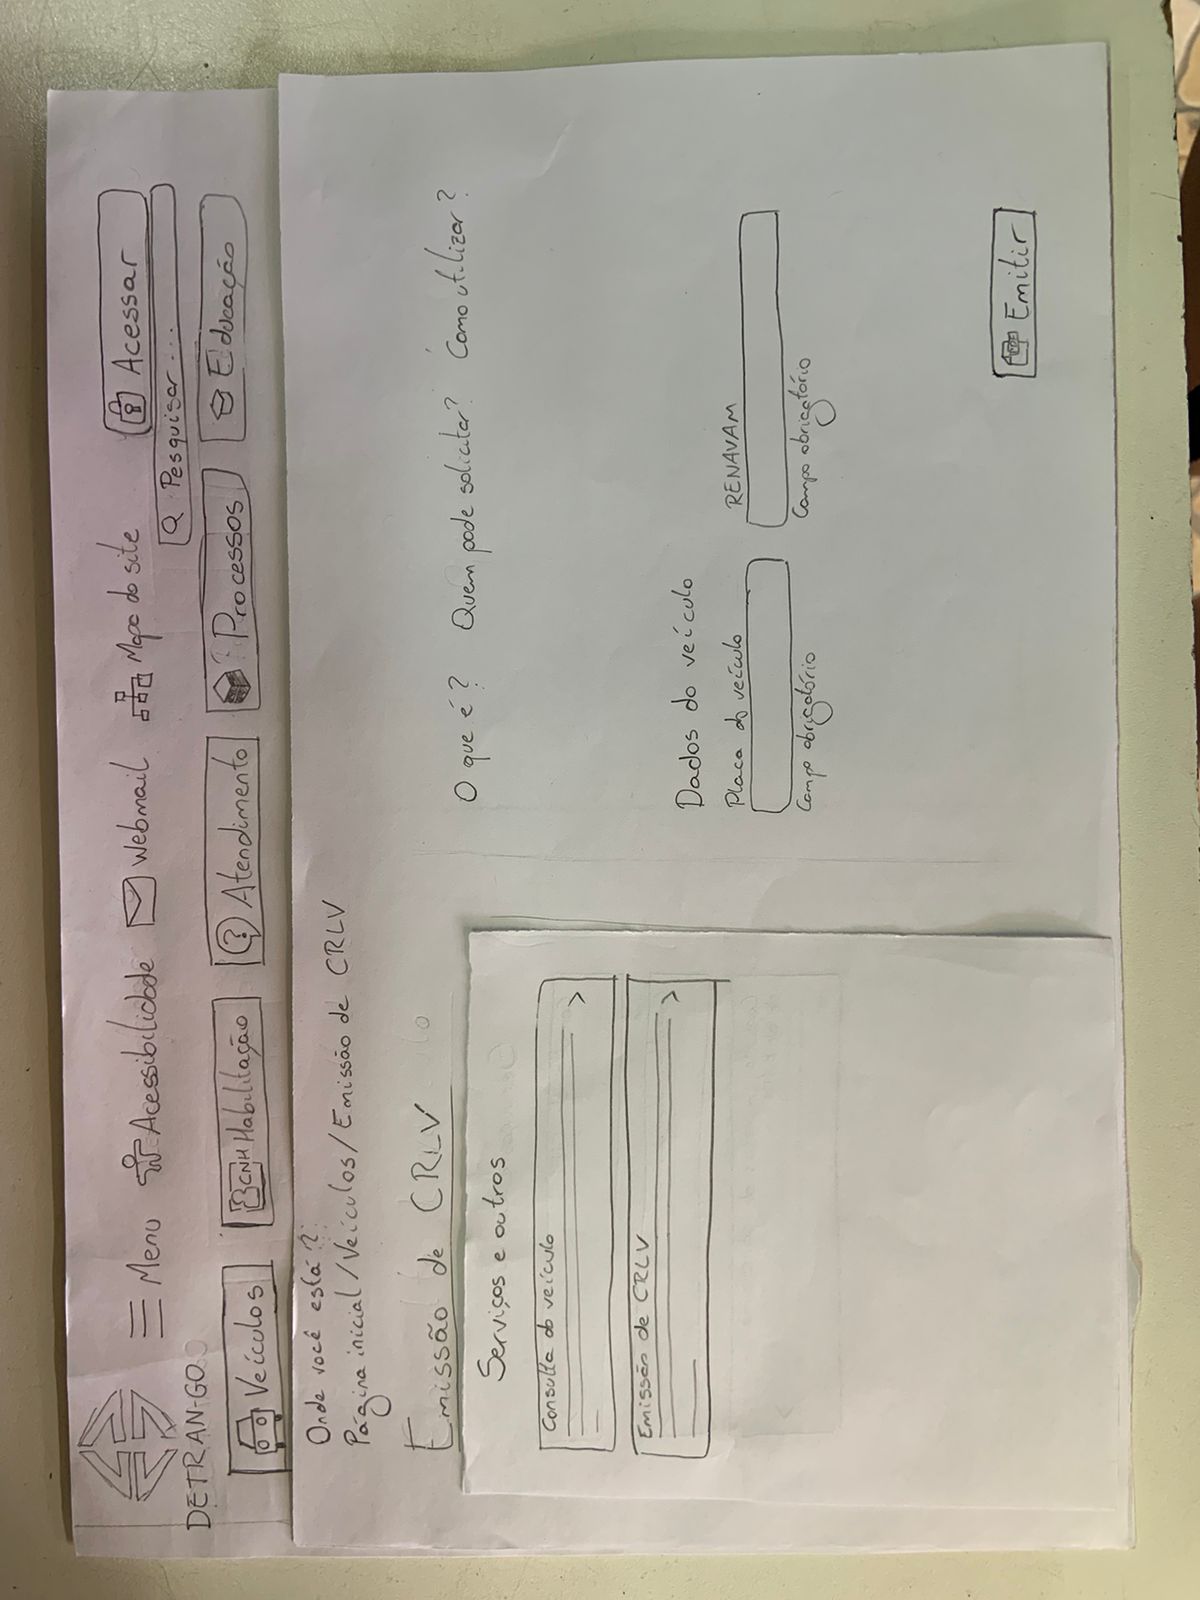 DETRAN-GO
Menu
Acessibilidade
Webmail
Mapa do site
Acessar
Pesquisar...
Veículos
CNH Habilitação
Atendimento
Processos
Educação
Onde você está?
Página inicial/Veículos/Emissão de CRLV
Emissão de CRLV
Serviços e outros
Consulta do veículo
Emissão de CRLV
O que é? Quem pode solicitar? Como utilizar?
Dados do veículo
Placa do veículo
RENAVAM
Campo obrigatório
Campo obrigatório
Emitir